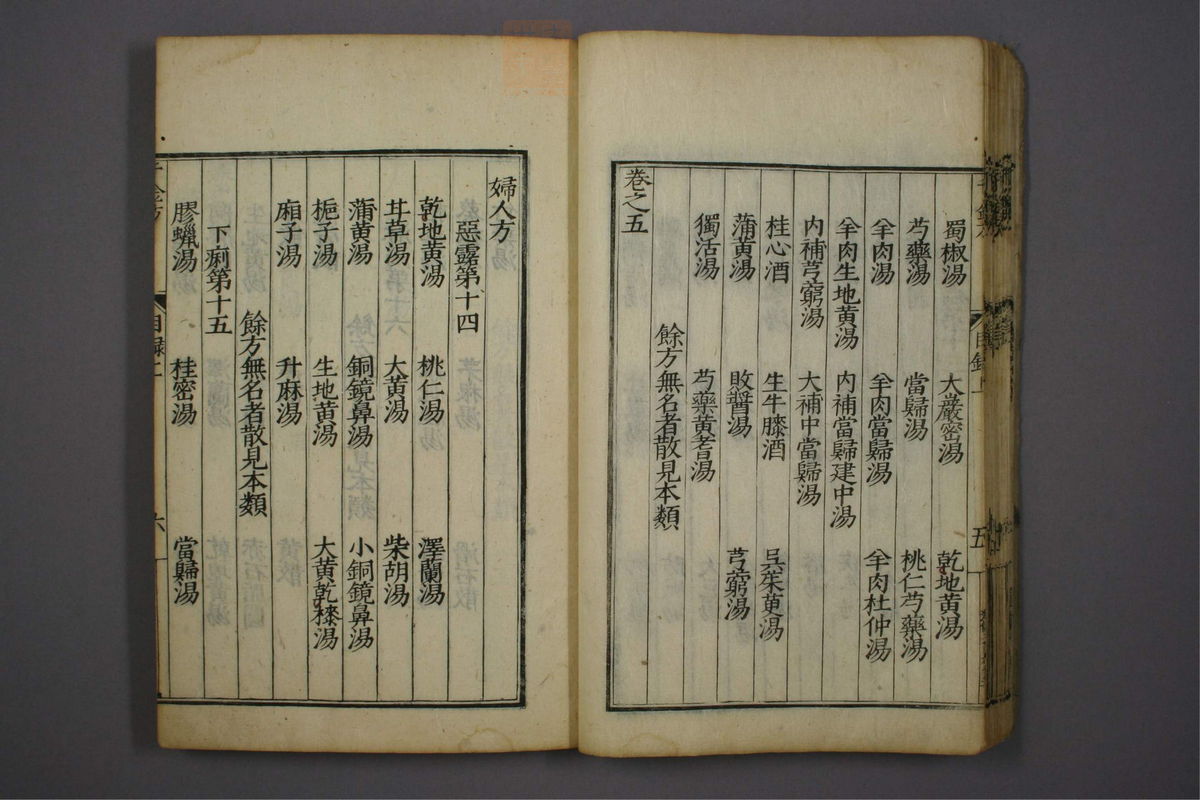 蜀椒湯 大巖密湯 乾地黃湯
芍藥湯 當歸湯 桃仁芍藥湯
羊肉湯 羊肉當歸湯 羊肉杜仲湯
羊肉生地黃湯 內補當歸建中湯
內補芎窮湯 大補中當歸湯
桂心酒 生牛膝酒 吳茱萸湯
蒲黃湯 敗醬湯 芎窮湯
獨活湯 芍藥黃耆湯
餘方無名者散見本類
卷之五
婦人方
惡露第十四
乾地黃湯 桃仁湯 澤蘭湯
甘草湯 大黃湯 柴胡湯
蒲黃湯 銅鏡鼻湯 小銅鏡鼻湯
梔子湯 生地黃湯 大黃乾漆湯
廂子湯 升麻湯
餘方無名者散見本類
下痢第十五
膠蠟湯 桂密湯 當歸湯
目錄上 六